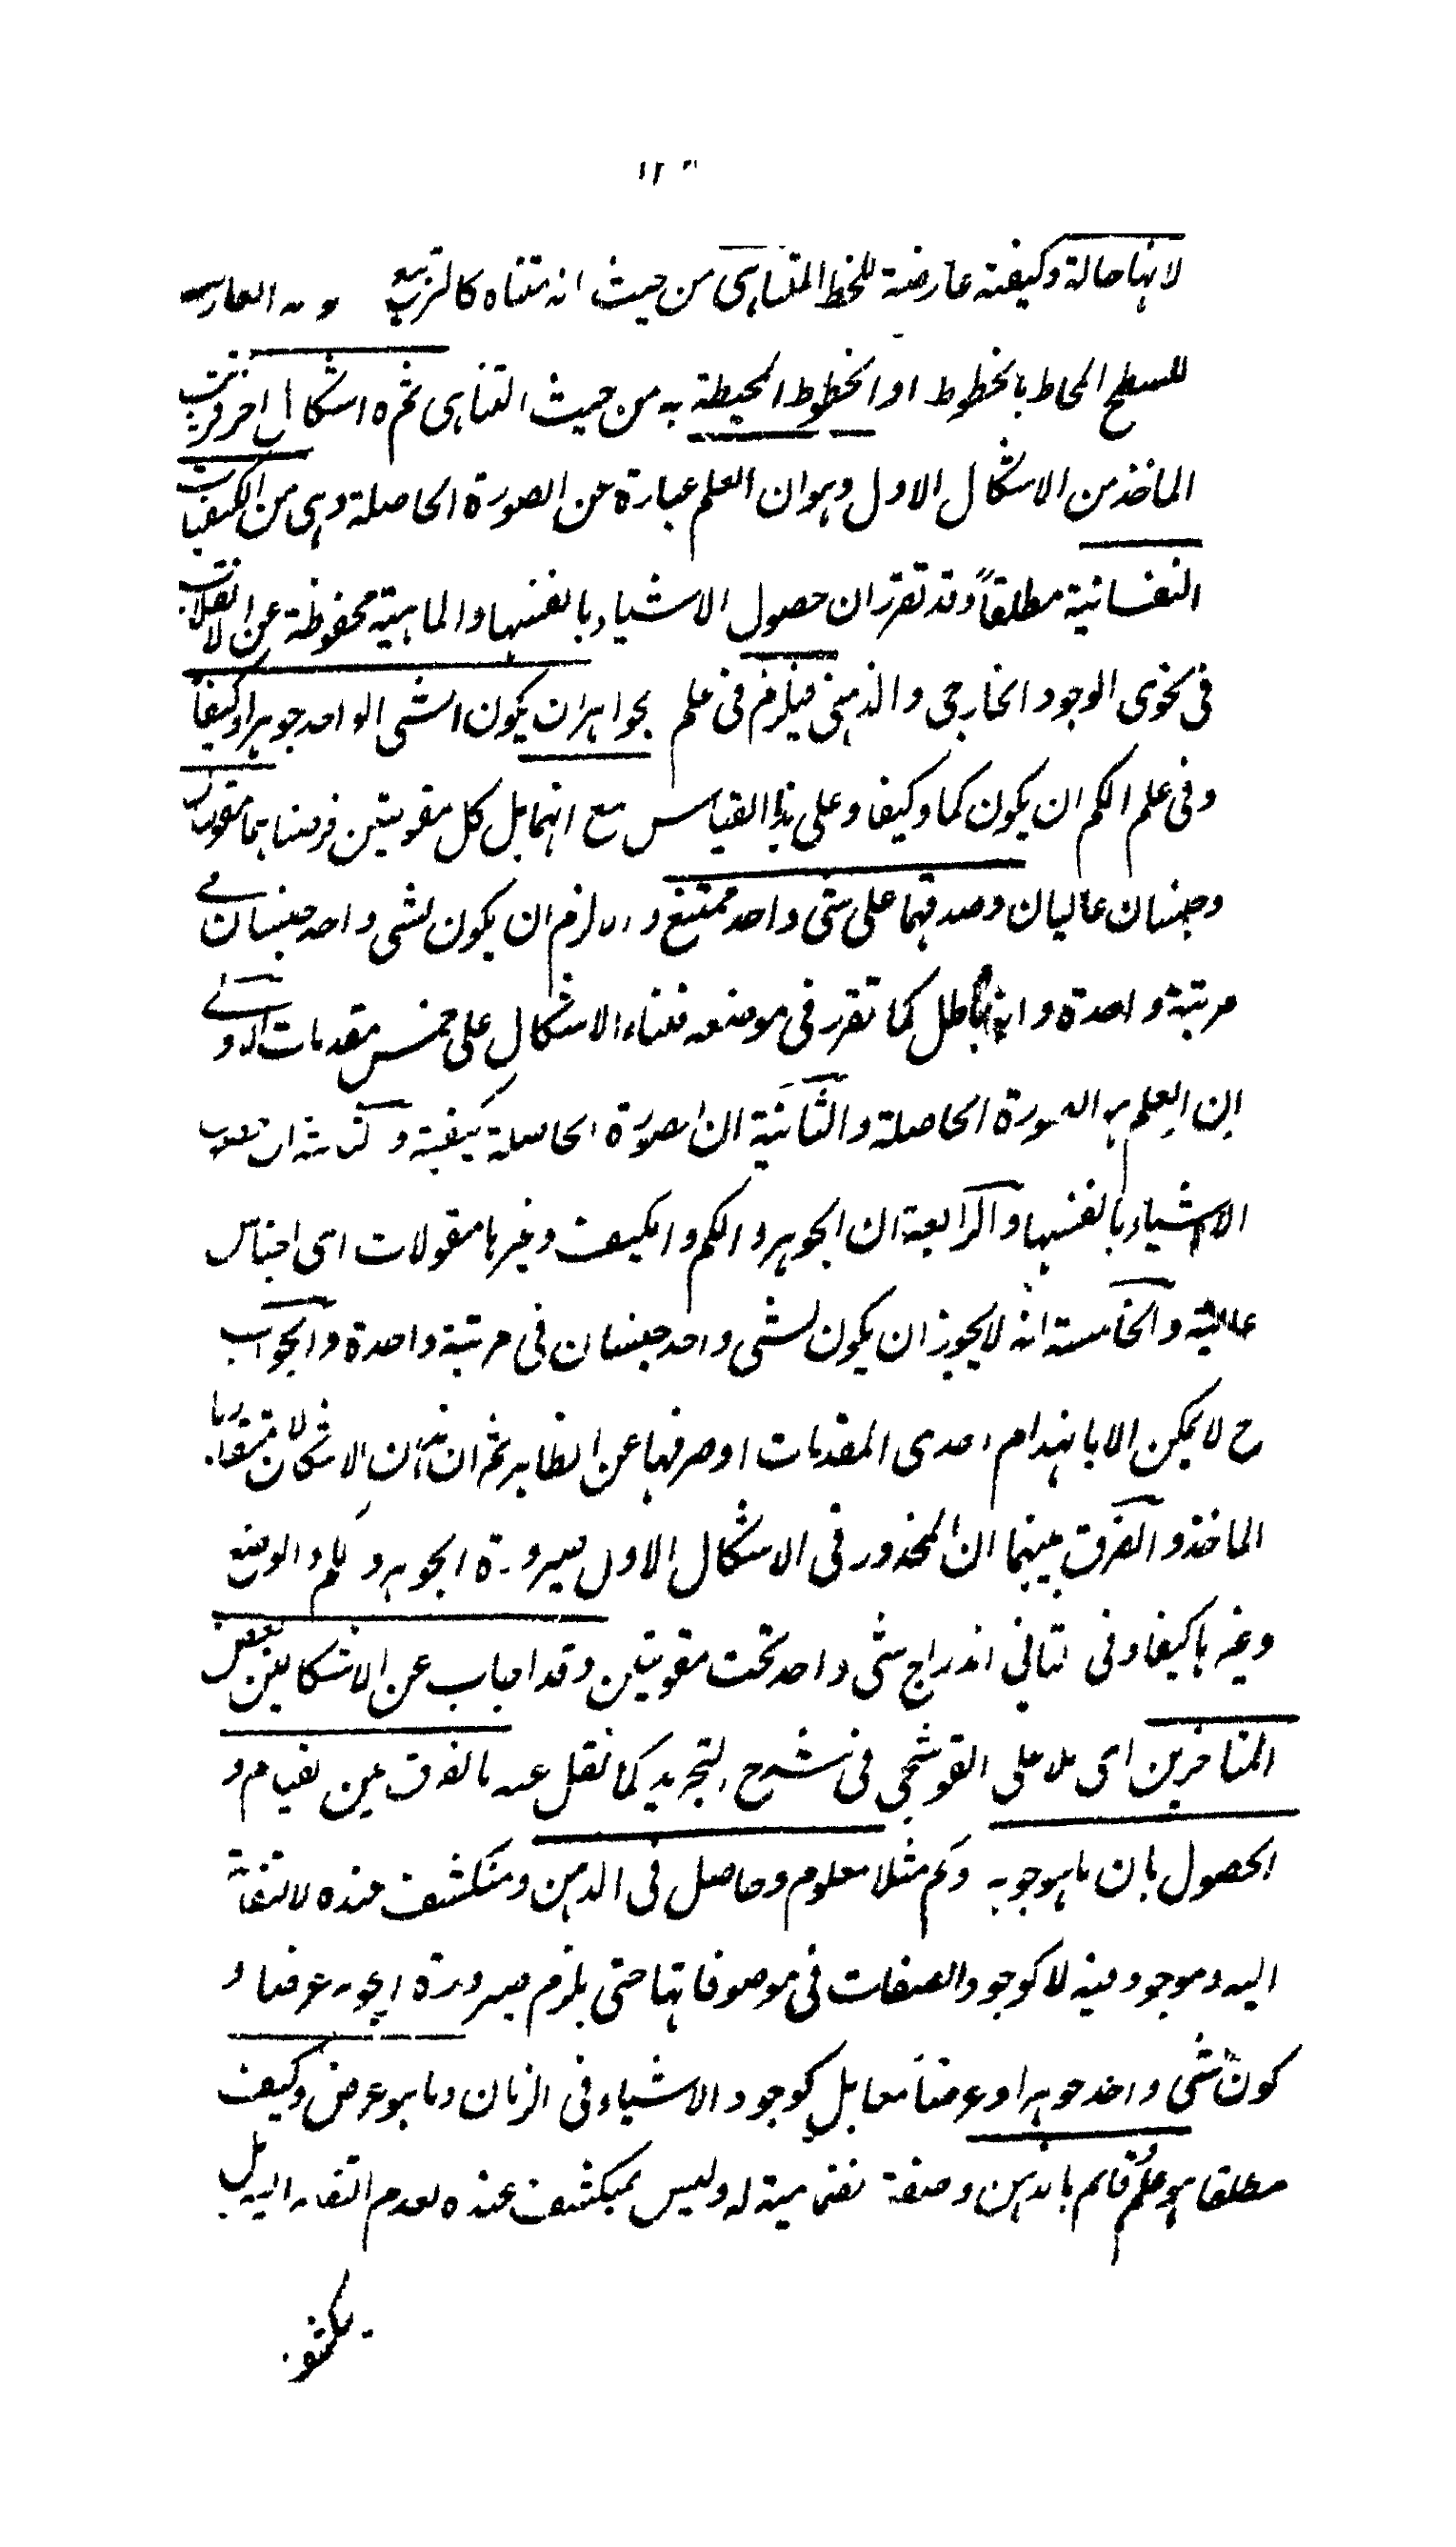 لانها حالة وكيفية عارضة للخط المتناهى من حيث انه متناه كالتربيع
للسطح المحاط بالخطوط او الخطوط المحيطة به من حيث التناهى ثم ه اشكال اخر قريب
الماخذ من الاشكال الاول وهو ان العلم عبارة عن الصورة الحاصلة وهى من الكيفيات
النفسانية مطلقاً وقد تقرر ان حصول الاشياء بانفسها والماهية محفوظة عن الانقلاب
فى نحوى الوجود الخارجى والذهنى فيلزم فى علم بجواهر ان يكون الشى الواحد جوهرا وكيفا
وفى علم الكم ان يكون كما وكيفا وعلى هذا القياس مع انهما بل كل مقولتين فرضتا هما مقولتان
وجنسان عاليان وصدقهما على شى واحد ممتنع و الا لزم ان يكون لشى واحد جنسان فى
مرتبة واحدة وانه باطل كما تقرر فى موضعه فبناء الاشكال على خمس مقدمات الاولى
ان العلم هو الصورة الحاصلة والثانية ان الصورة الحاصلة كيفية و الثالثة ان حصول
الاشياء بانفسها والرابعة ان الجوهر والكم والكيف وغيرها مقولات اى اجناس
عالية والخامسة انه لا يجوز ان يكون لشى واحد جنسان فى مرتبة واحدة والجواب
ح لا يمكن الا بانهدام احدى المقدمات او صرفها عن الظاهر ثم ان هذين الاشكالان متقاربا
الماخذ والفرق بينهما ان المحذور فى الاشكال الاول صيرورة الجوهر و الكم والوضع
وغيرها كيفا وفى الثانى اندراج شى واحد تحت مقولتين وقد اجاب عن الاشكالين بعض
المتاخرين اى ملا على القوشجى فى شرح التجريد كما نقل عنه بالفرق بين القيام و
الحصول بان ما هو جوهر وكم مثلا معلوم وحاصل فى الذهن ومنكشف عنده لالتفاته
اليه وموجود فيه لا كوجود الصفات فى موصوفاتها حتى يلزم صيرورة الجوهر عرضا و
كون شى واحد جوهرا وعرضا معا بل كوجود الاشياء فى الزمان وما هو عرض وكيف
مطلقا هو علم قائم بالذهن وصفة انضمامية له وليس بمنكشف عنده لعدم التفاته اليه بل